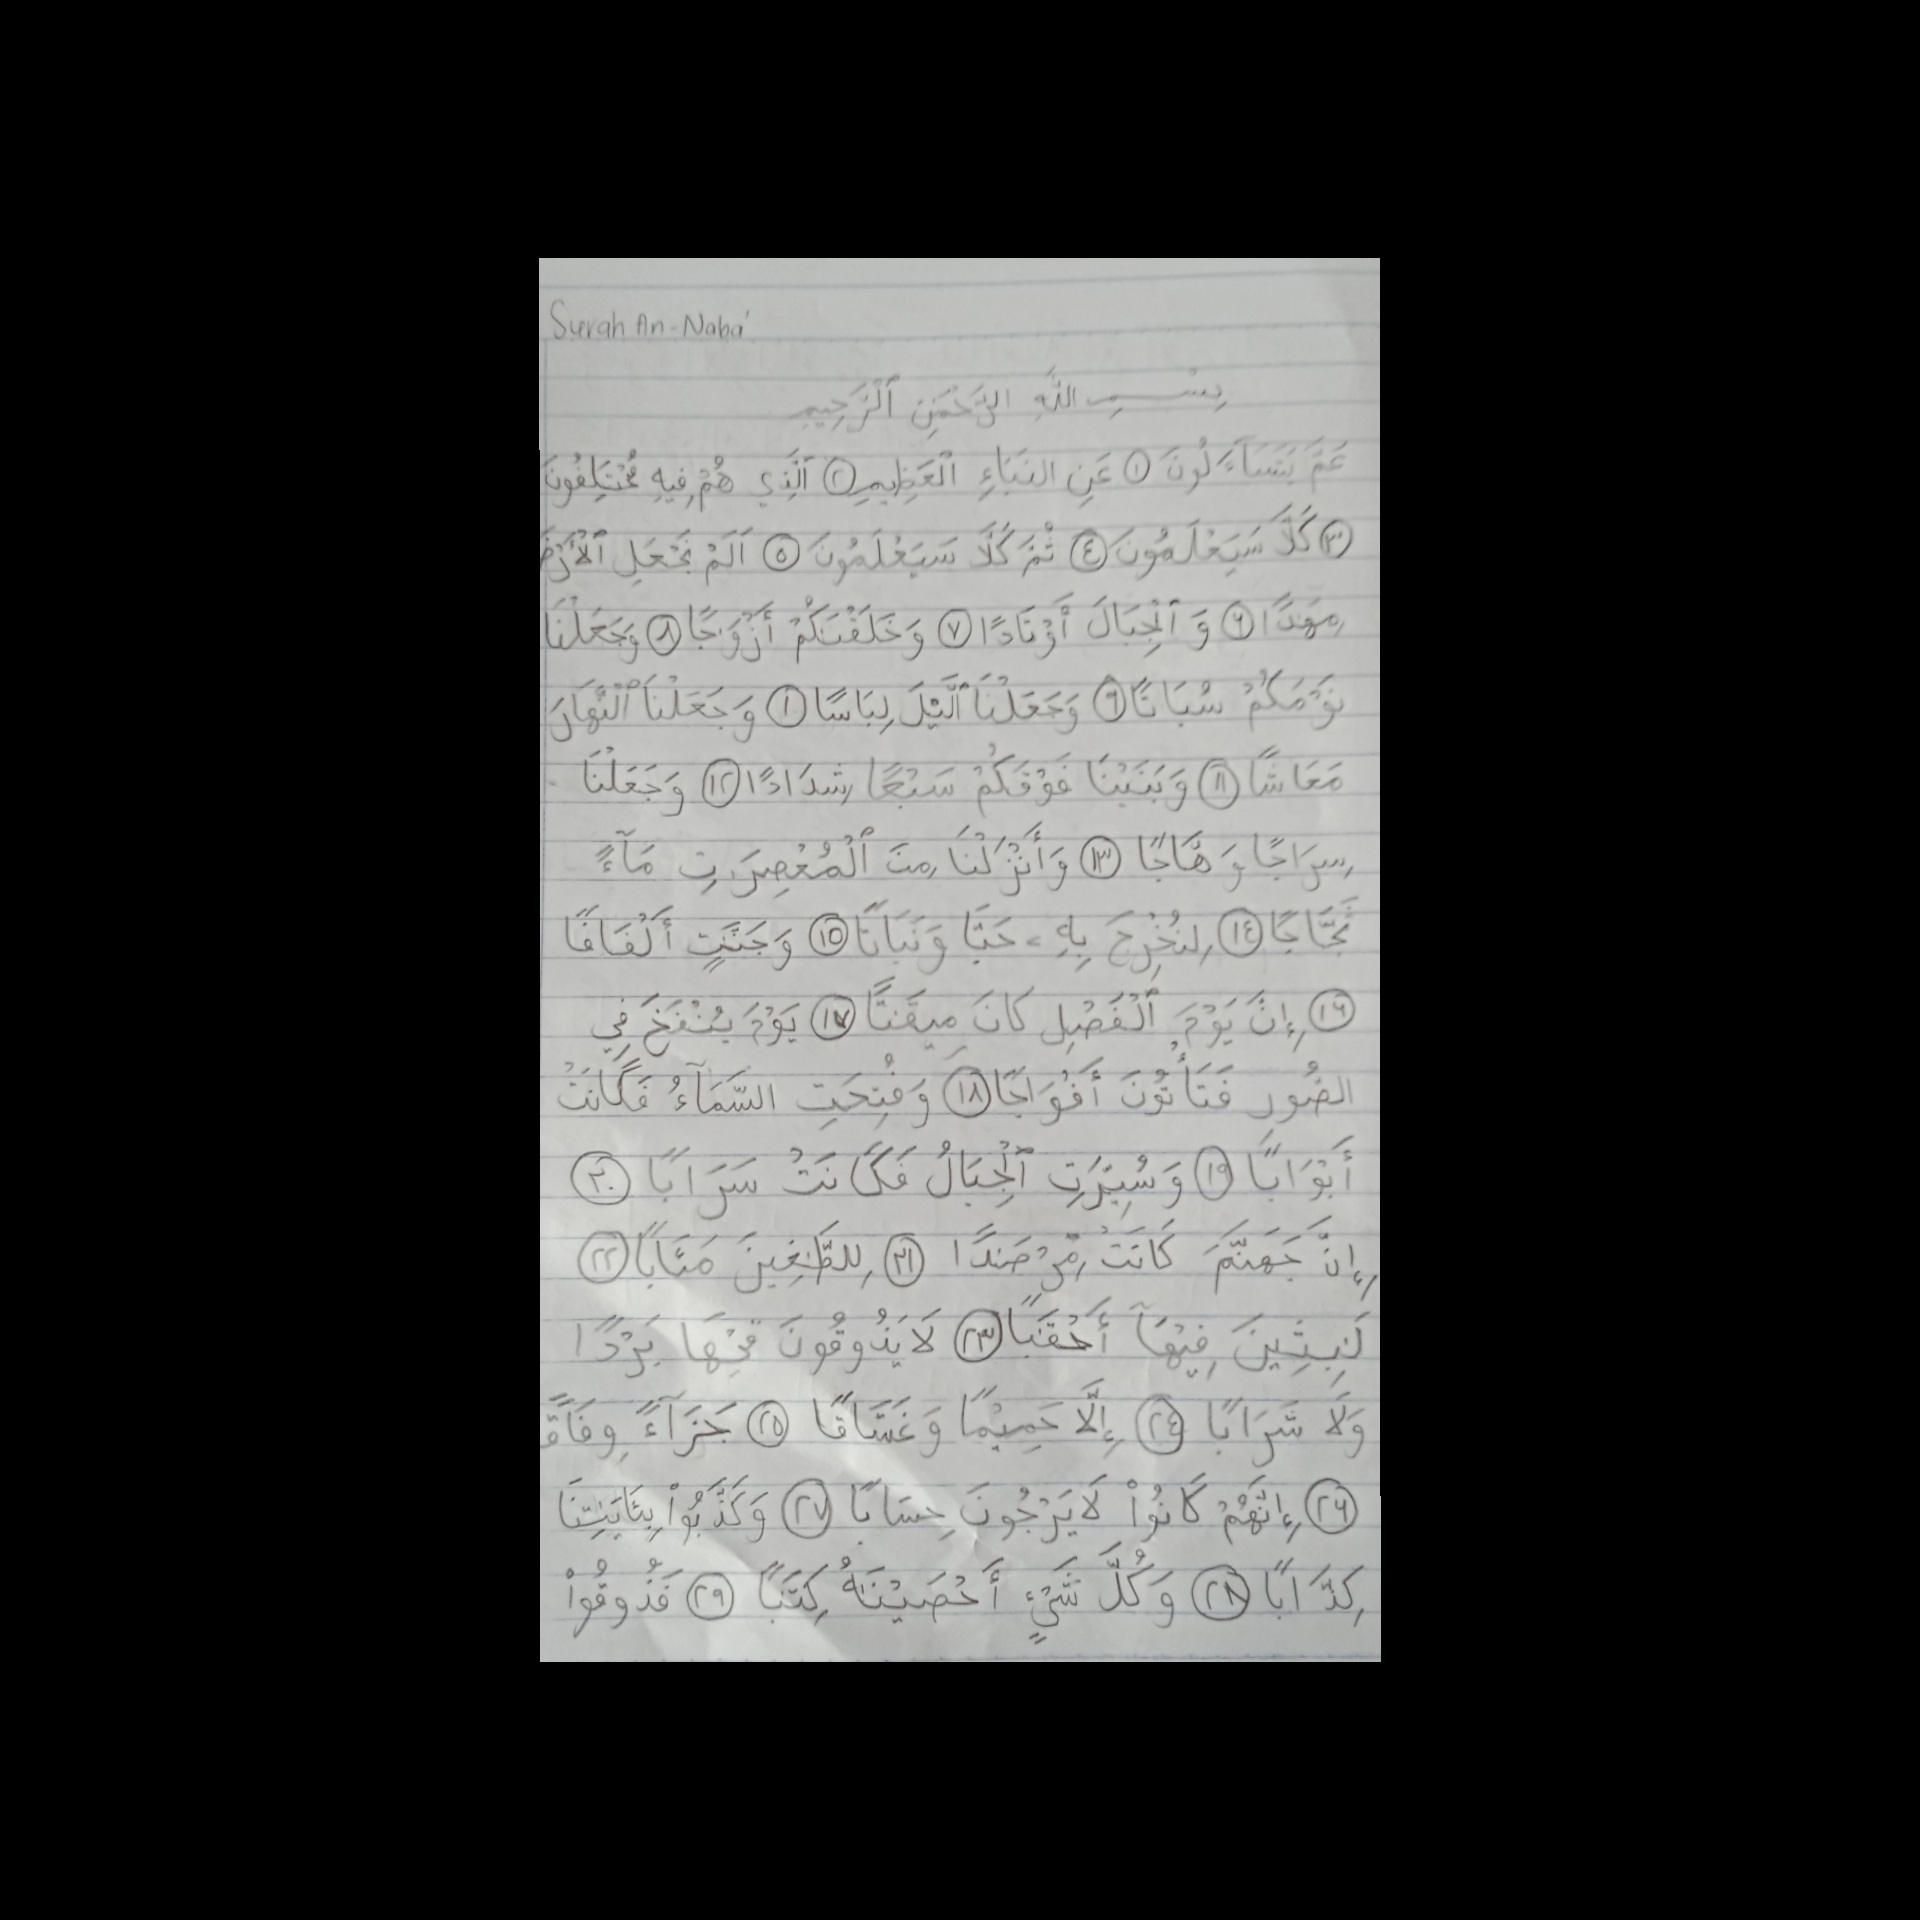 Surah An-Naba'
بِسْــــمِ اللّٰهِ الرَّحْمَٰنِ ٱلْرَّحِيمِ
عَمَّ يَتَسَآءَلُونَ ١ عَنِ النَّبَاءِ ٱلْعَظِيمِ ٢ ٱلَّذِي هُمْ فِيهِ مُخْتَلِفُونَ
٣ كَلَّا سَيَعْلَمُونَ ٤ ثُمَّ كَلَّا سَيَعْلَمُونَ ٥ أَلَمْ نَجْعَلِ ٱلْأَرْضَ
مِهَٰدًا ٦ وَ ٱلْجِبَالَ أَوْتَادًا ٧ وَخَلَقْنَٰكُمْ أَزْوَٰجًا ٨ وَجَعَلْنَا
نَوْمَكُمْ سُبَاتًا ٩ وَجَعَلْنَا ٱلَّيْلَ لِبَاسًا ١٠ وَجَعَلْنَا ٱلْنَّهَارَ
مَعَاشًا ١١ وَبَنَيْنَا فَوْقَكُمْ سَبْعًا شِدَادًا ١٢ وَجَعَلْنَا
سِرَاجًا وَهَّاجًا ١٣ وَأَنْزَلْنَا مِنَ ٱلْمُعْصِرَٰتِ مَآءً
ثَجَّاجًا ١٤ لِنُخْرِجَ بِهِۦ حَبًّا وَنَبَاتًا ١٥ وَجَنَّٰتٍ أَلْفَافًا
١٦ إِنَّ يَوْمَ ٱلْفَصْلِ كَانَ مِيقَٰتًا ١٧ يَوْمَ يُنْفَخُ فِي
الصُّورِ فَتَأْتُونَ أَفْوَاجًا ١٨ وَفُتِحَتِ السَّمَآءُ فَكَانَتْ
أَبْوَابًا ١٩ وَسُيِّرَتِ ٱلْجِبَالُ فَكَانَتْ سَرَابًا ٢٠
إِنَّ جَهَنَّمَ كَانَتْ مِرْصَدًا ٢١ لِلطَّٰغِينَ مَـَٔابًا ٢٢
لَٰبِثِينَ فِيهَآ أَحْقَٰبًا ٢٣ لَا يَذُوقُونَ فِيْهَا بَرْدًا
وَلَا شَرَابًا ٢٤ إِلَّا حَمِيْمًا وَغَسَّاقًا ٢٥ جَزَآءً وِفَاقً
٢٦ إِنَّهُمْ كَانُوْا لَا يَرْجُونَ حِسَابًا ٢٧ وَكَذَّبُوْا بِـَٔايَٰتِنَا
كِذَّابًا ٢٨ وَكُلَّ شَيْءٍ أَحْصَيْنَٰهُ كِتَٰبًا ٢٩ فَذُوقُوْا